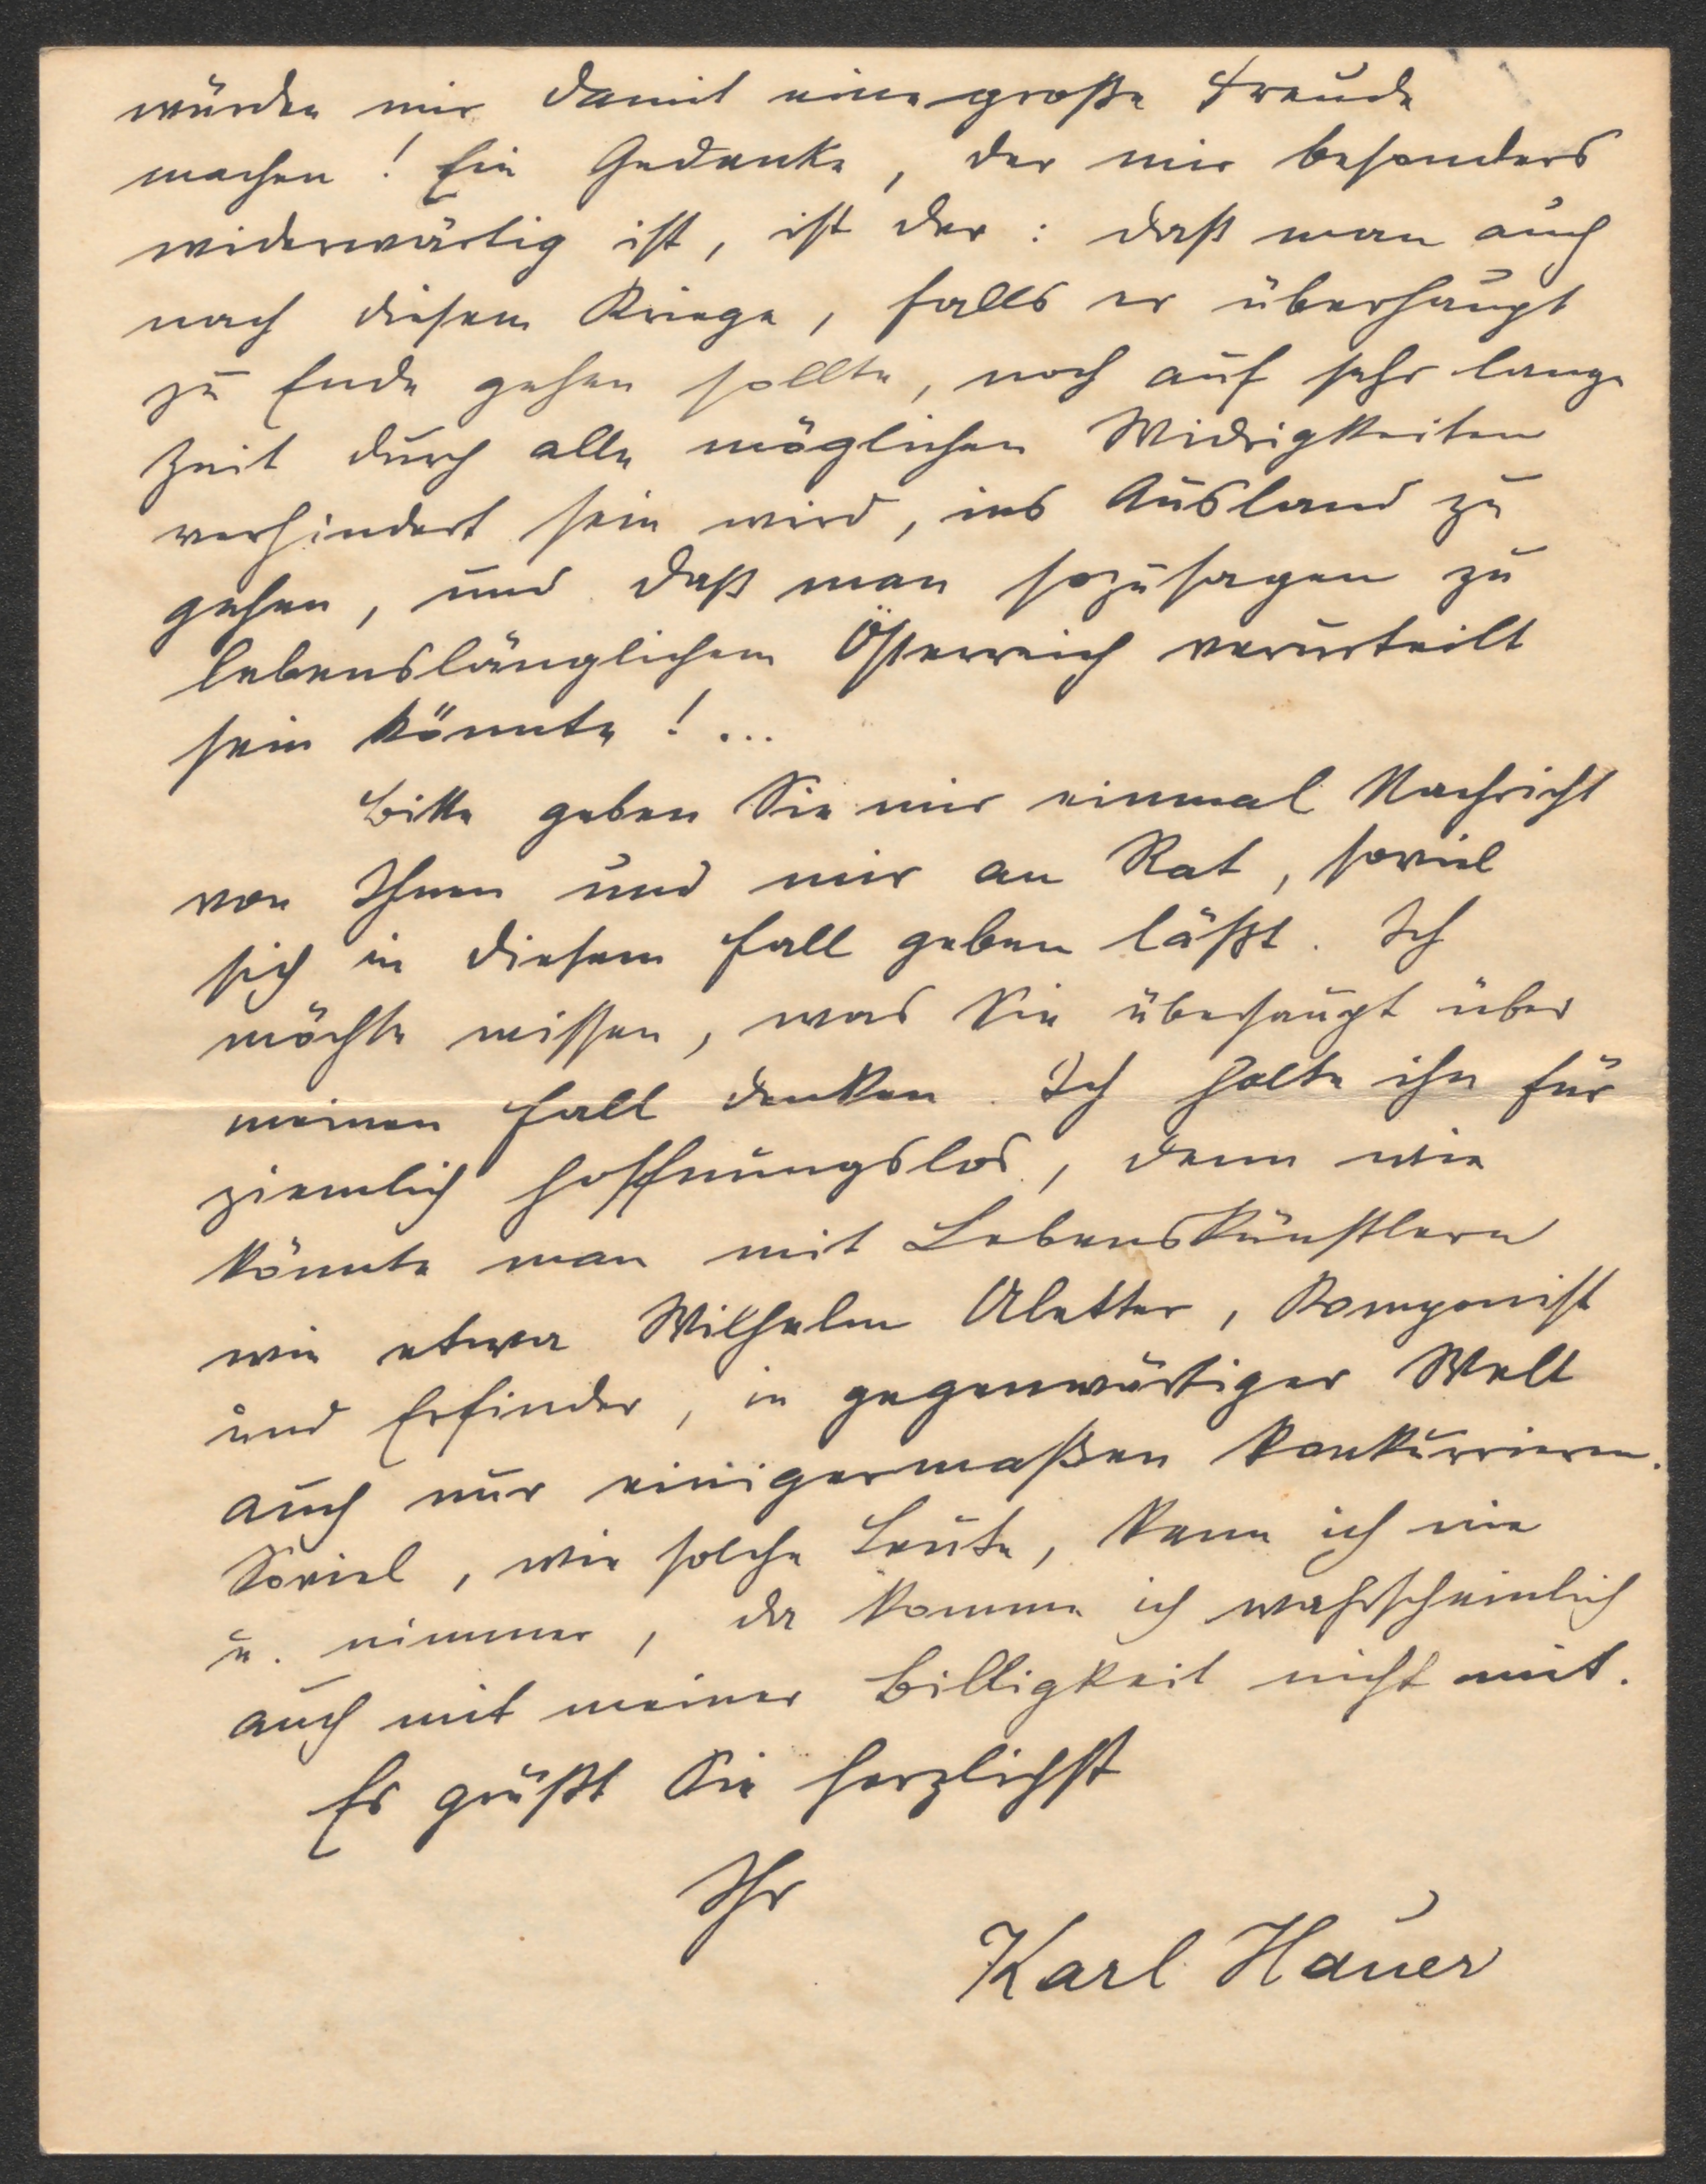 würden mir damit eine große Freude
machen! Ein Gedanke, der mir besonders
widerwärtig ist, ist der: daß man auch
nach diesem Kriege, falls er überhaupt
zu Ende gehen sollte, noch auf sehr lange
Zeit durch alle möglichen Widrigkeiten
verhindert sein wird, ins Ausland zu
gehen, und daß man sozusagen zu
lebenslänglichem Österreich verurteilt
sein könnte! ...
Bitte geben Sie mir einmal Nachricht
von Ihnen und mir an Rat, soviel
sich in diesem Fall geben läßt. Ich
möchte wissen, was Sie überhaupt über
meinen Fall denken. Ich halte ihn für
ziemlich hoffnungslos, denn wie
könnte man mit Lebenskünstlern
wie etwa Wilhelm Aletter, Komponist
und Erfinder, in gegenwärtiger Welt
auch nur einigermaßen konkurrieren.
Soviel, wie solche Leute, kann ich nie
u. nimmer, da komme ich wahrscheinlich
auch mit meiner Billigkeit nicht mit.
Es grüßt Sie herzlichst
Ihr
Karl Hauer